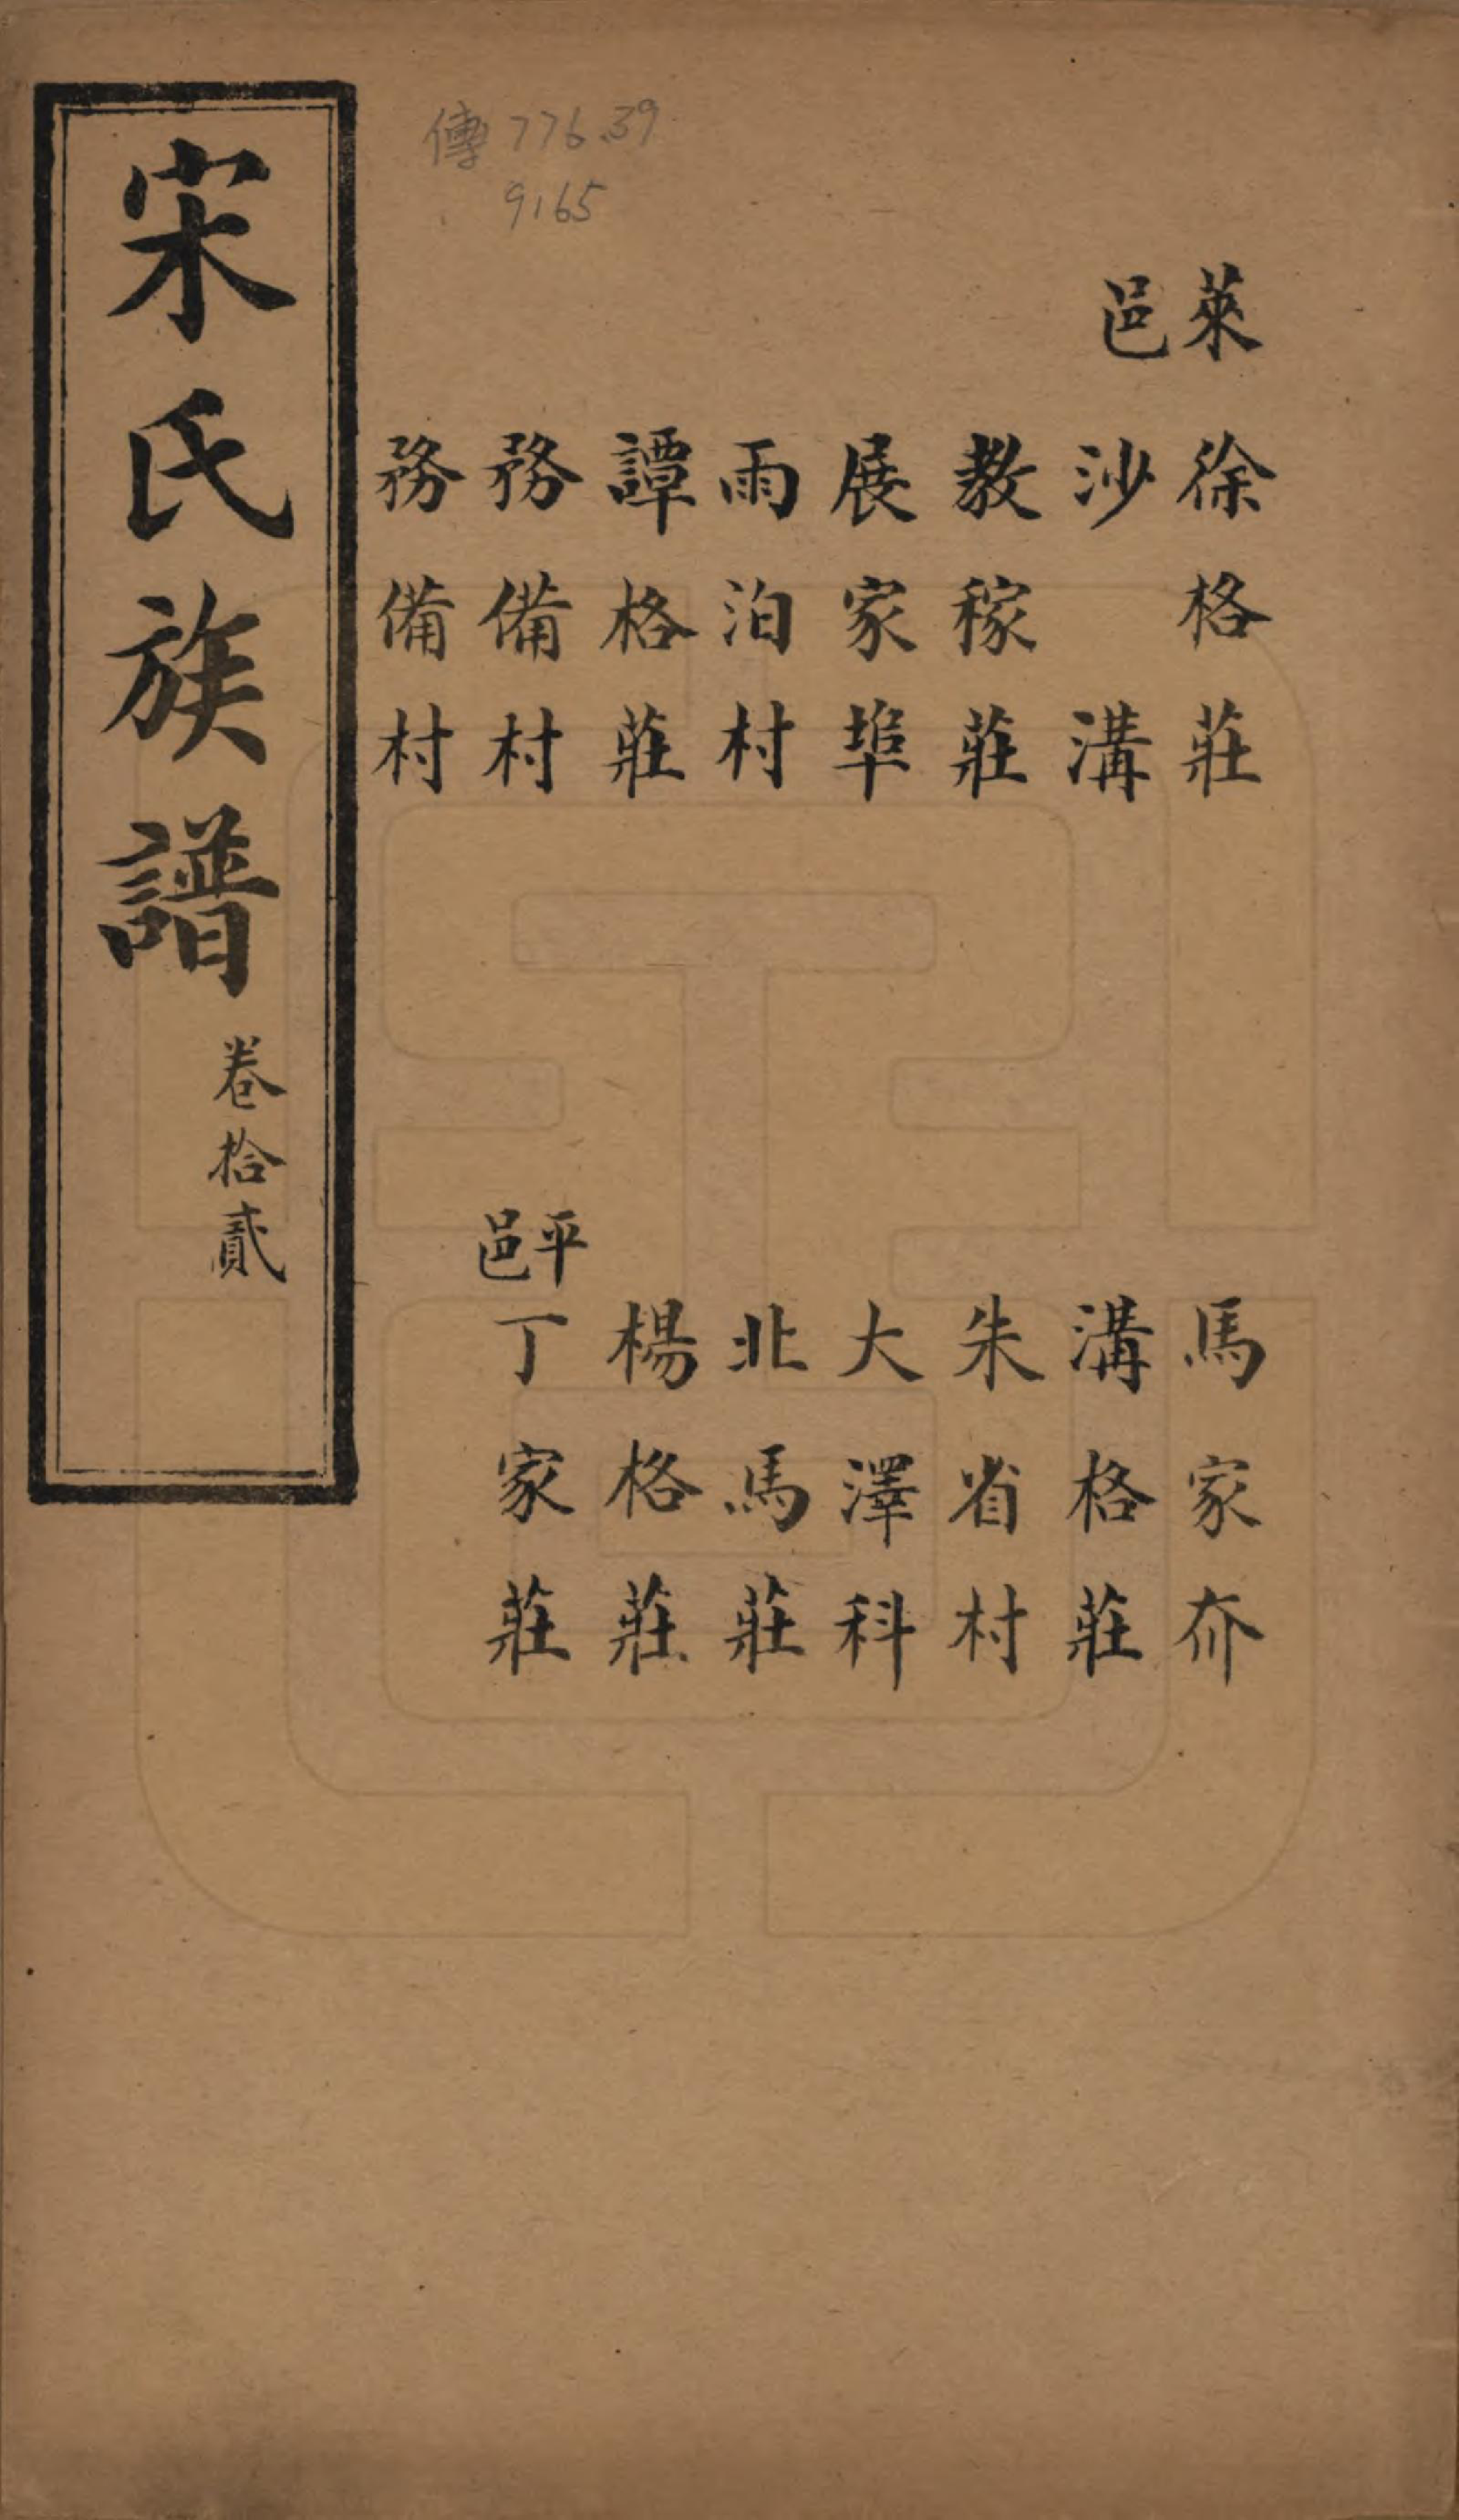 宋氏族譜 卷拾貳
傳 776.39
9165
萊邑
徐格莊
沙溝
教稼莊
展家埠
雨泊村
譚格莊
務備村
務備村
馬家夼
溝格莊
朱省村
大澤科
北馬莊
楊格莊
平邑
丁家莊